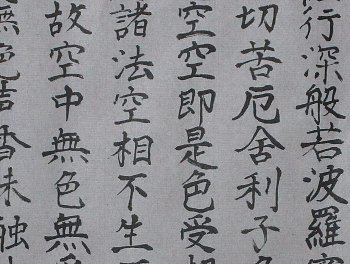 行深般若波羅
切苦厄舍利子
空空即是色受
諸法空相不生
故空中無色無
無色声香味触